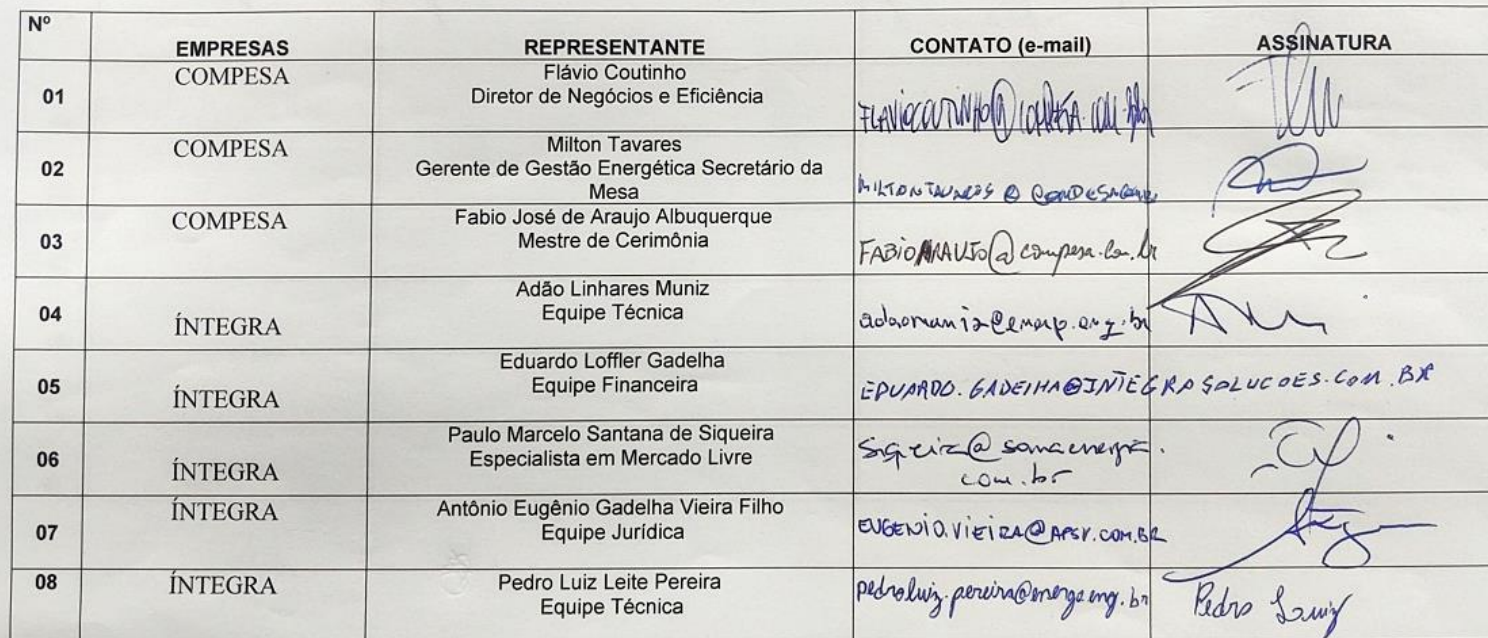 Nº EMPRESAS REPRESENTANTE CONTATO (e-mail) ASSINATURA
01 COMPESA Flávio Coutinho
Diretor de Negócios e Eficiência
FLAVIOCOUTINHO@COMPESA.COM.BR
02 COMPESA Milton Tavares
Gerente de Gestão Energética Secretário da
Mesa
MILTONTAVARES @
03 COMPESA Fabio José de Araujo Albuquerque
Mestre de Cerimônia
FABIOARAUJO@compesa.com.br
04 ÍNTEGRA Adão Linhares Muniz
Equipe Técnica
05 ÍNTEGRA Eduardo Loffler Gadelha
Equipe Financeira
EDUARDO.GADELHA@INTEGRASOLUCOES.COM.BR
06 ÍNTEGRA Paulo Marcelo Santana de Siqueira
Especialista em Mercado Livre
siqueira@somaenergia.
com.br
07 ÍNTEGRA Antônio Eugênio Gadelha Vieira Filho
Equipe Jurídica
EUGENIO.VIEIRA@APSV.COM.BR
08 ÍNTEGRA Pedro Luiz Leite Pereira
Equipe Técnica
pedroluiz.pereira@energo.eng.br Pedro Luiz